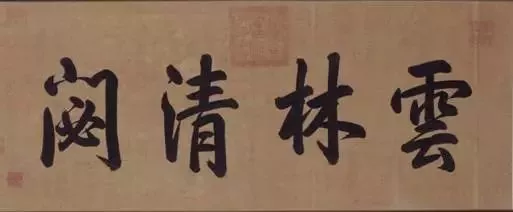 雲林清閟